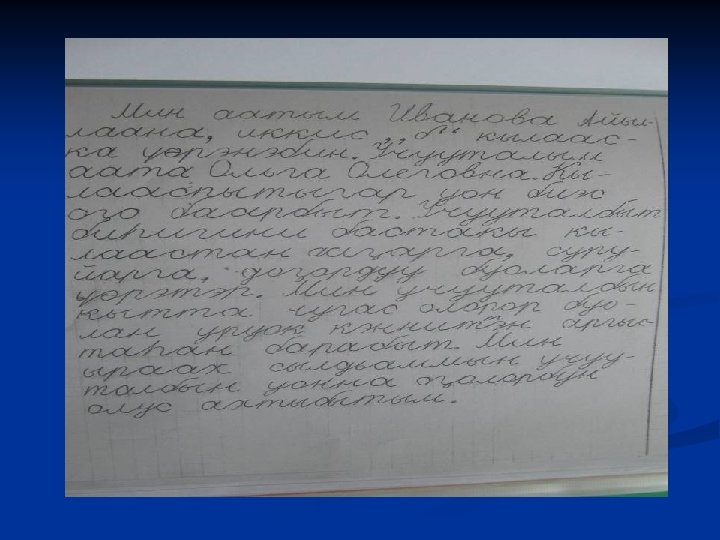 Мин аатым Иванова Айыы-
лаана, иккис „б“ кылаас-
ка үөрэнэбин. Учууталым
аата Ольга Олеговна. Кы-
лааспытыгар уон биэс
оҕо баарбыт. Учууталбыт
биһигини бастакы кы-
лаастан ааҕарга, суру-
йарга, доҕордуу буоларга
үөрэтэр. Мин учууталбын
кытта чугас олорор буо-
лан уруок кэнниттэн аргыс-
таһан барабыт. Мин
ыраах сылдьаммын учуу-
талбын уонна оҕолорбун
олус ахтыбытым.